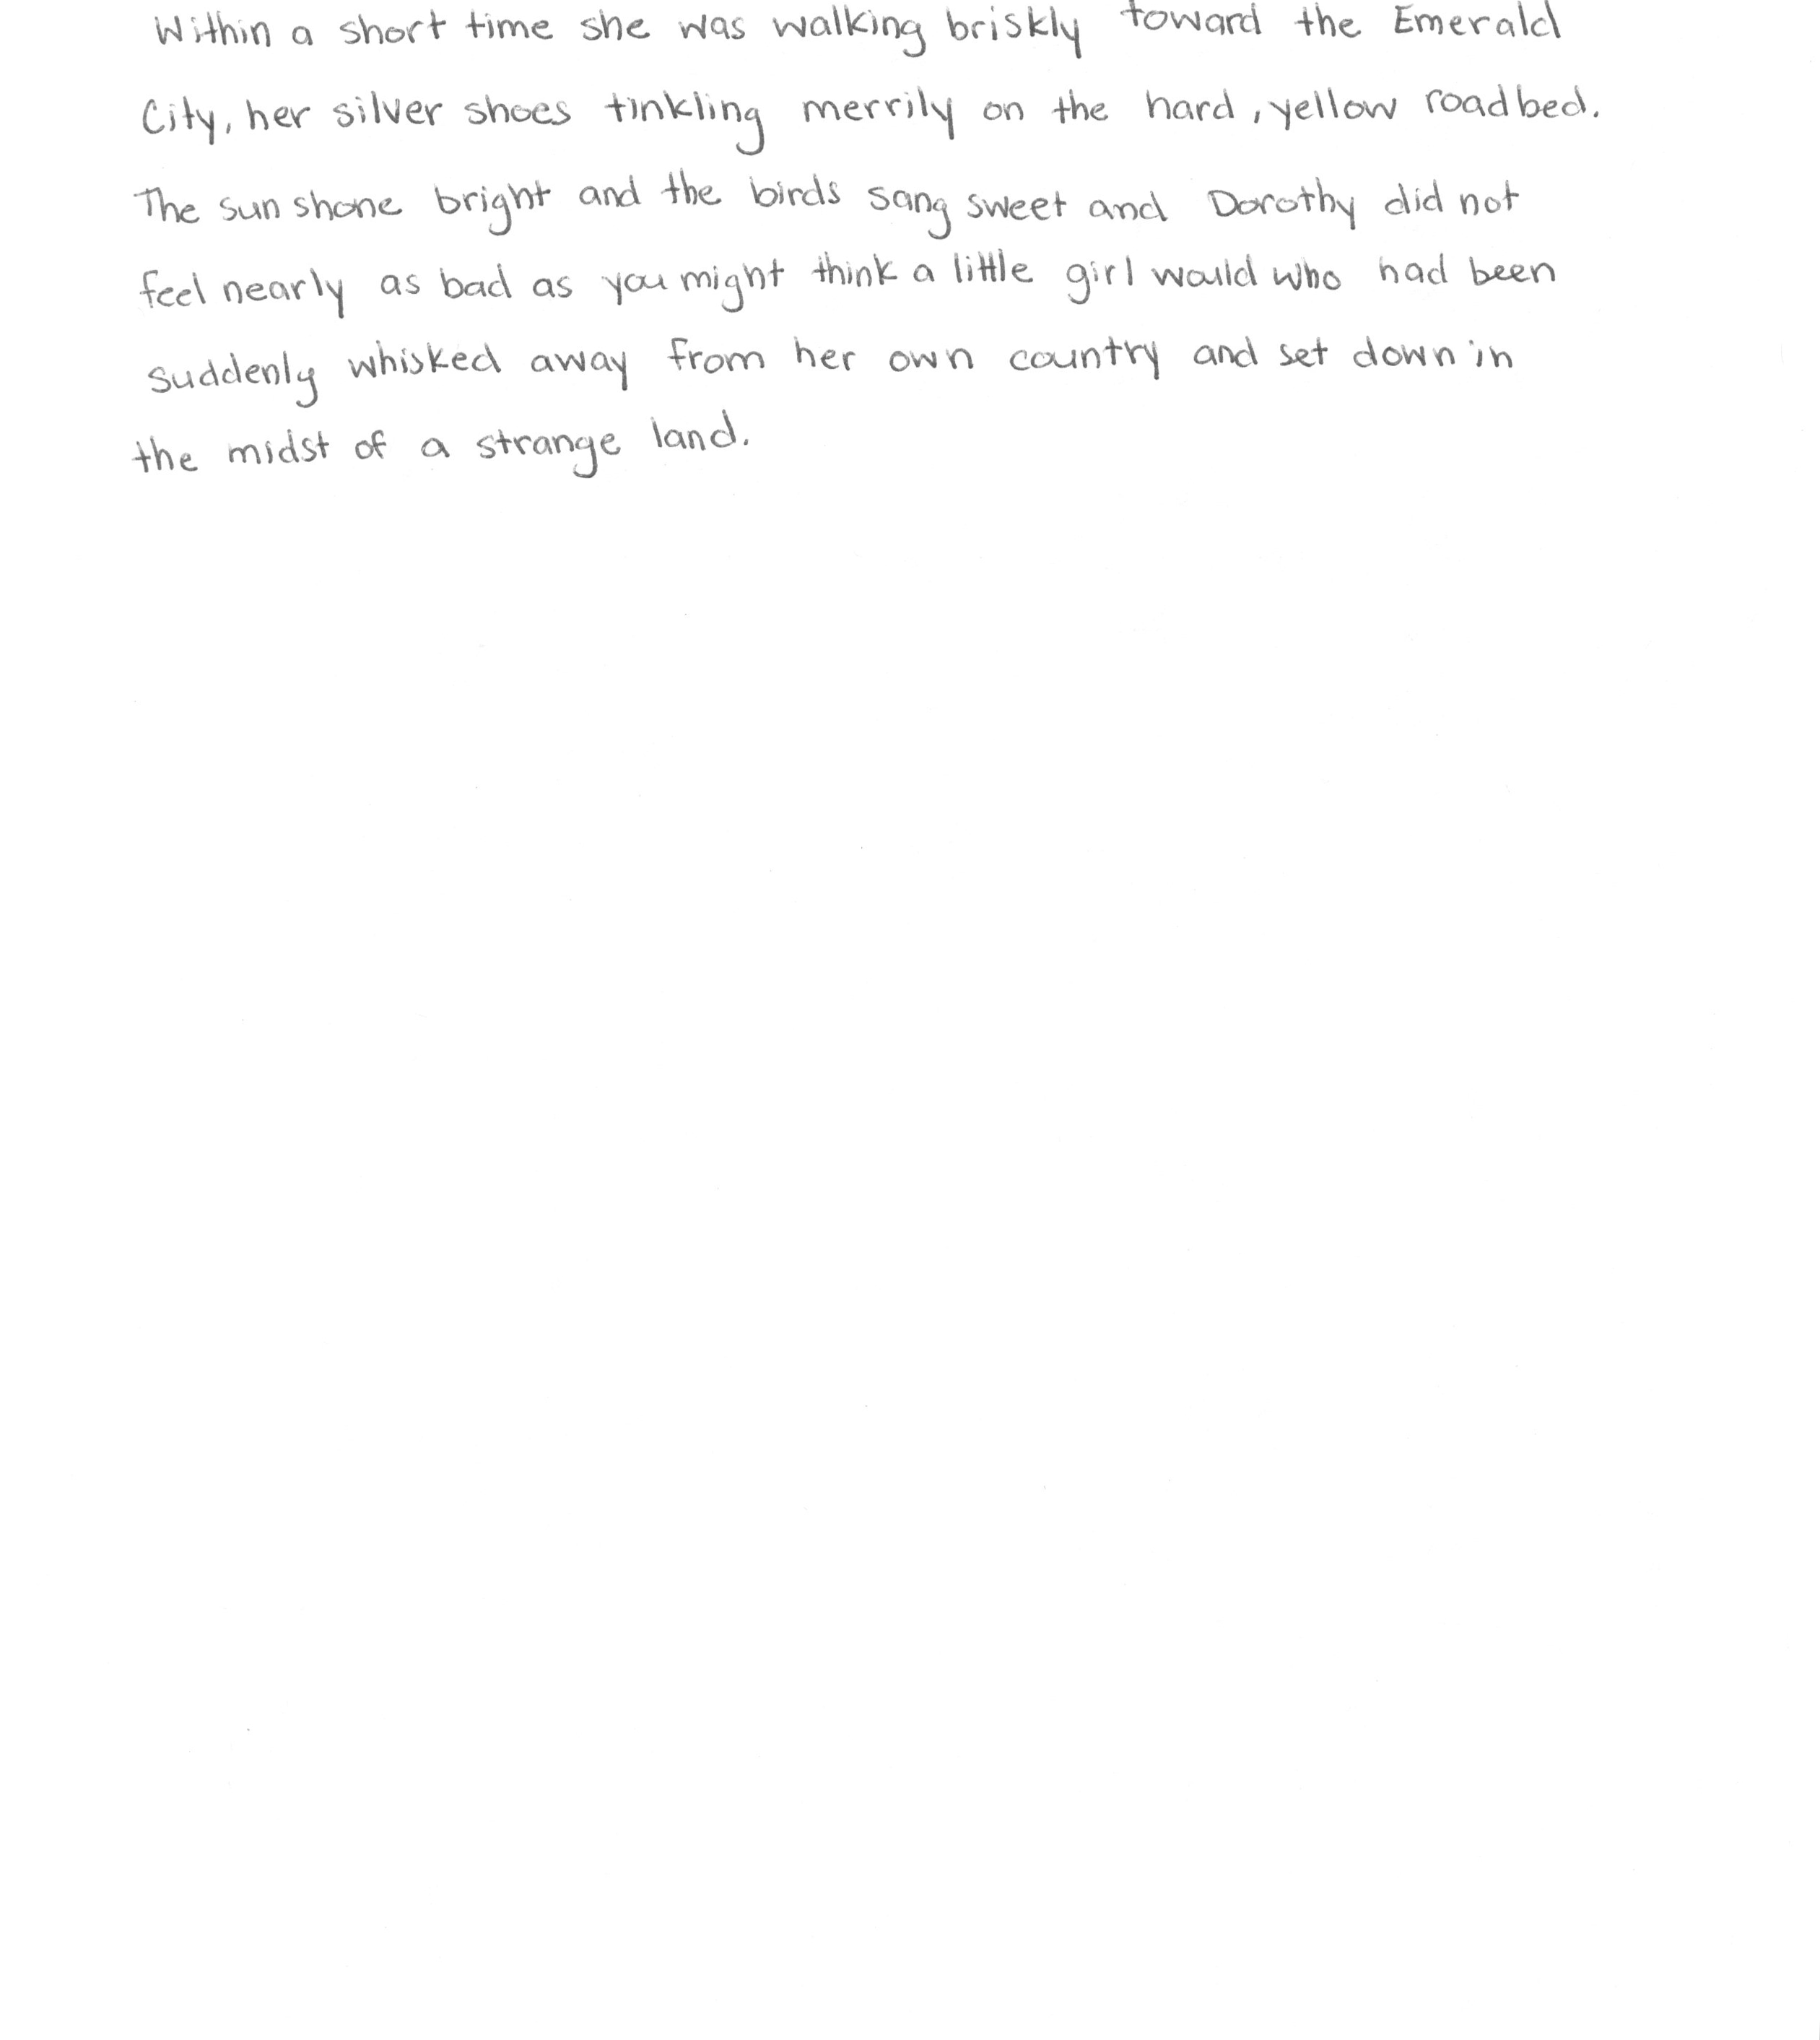 Within a short time she was walking briskly toward the Emerald
City, her silver shoes tinkling merrily on the hard, yellow roadbed.
The sun shone bright and the birds sang sweet and Dorothy did not
feel nearly as bad as you might think a little girl would who had been
suddenly whisked away from her own country and set down in
the midst of a strange land.